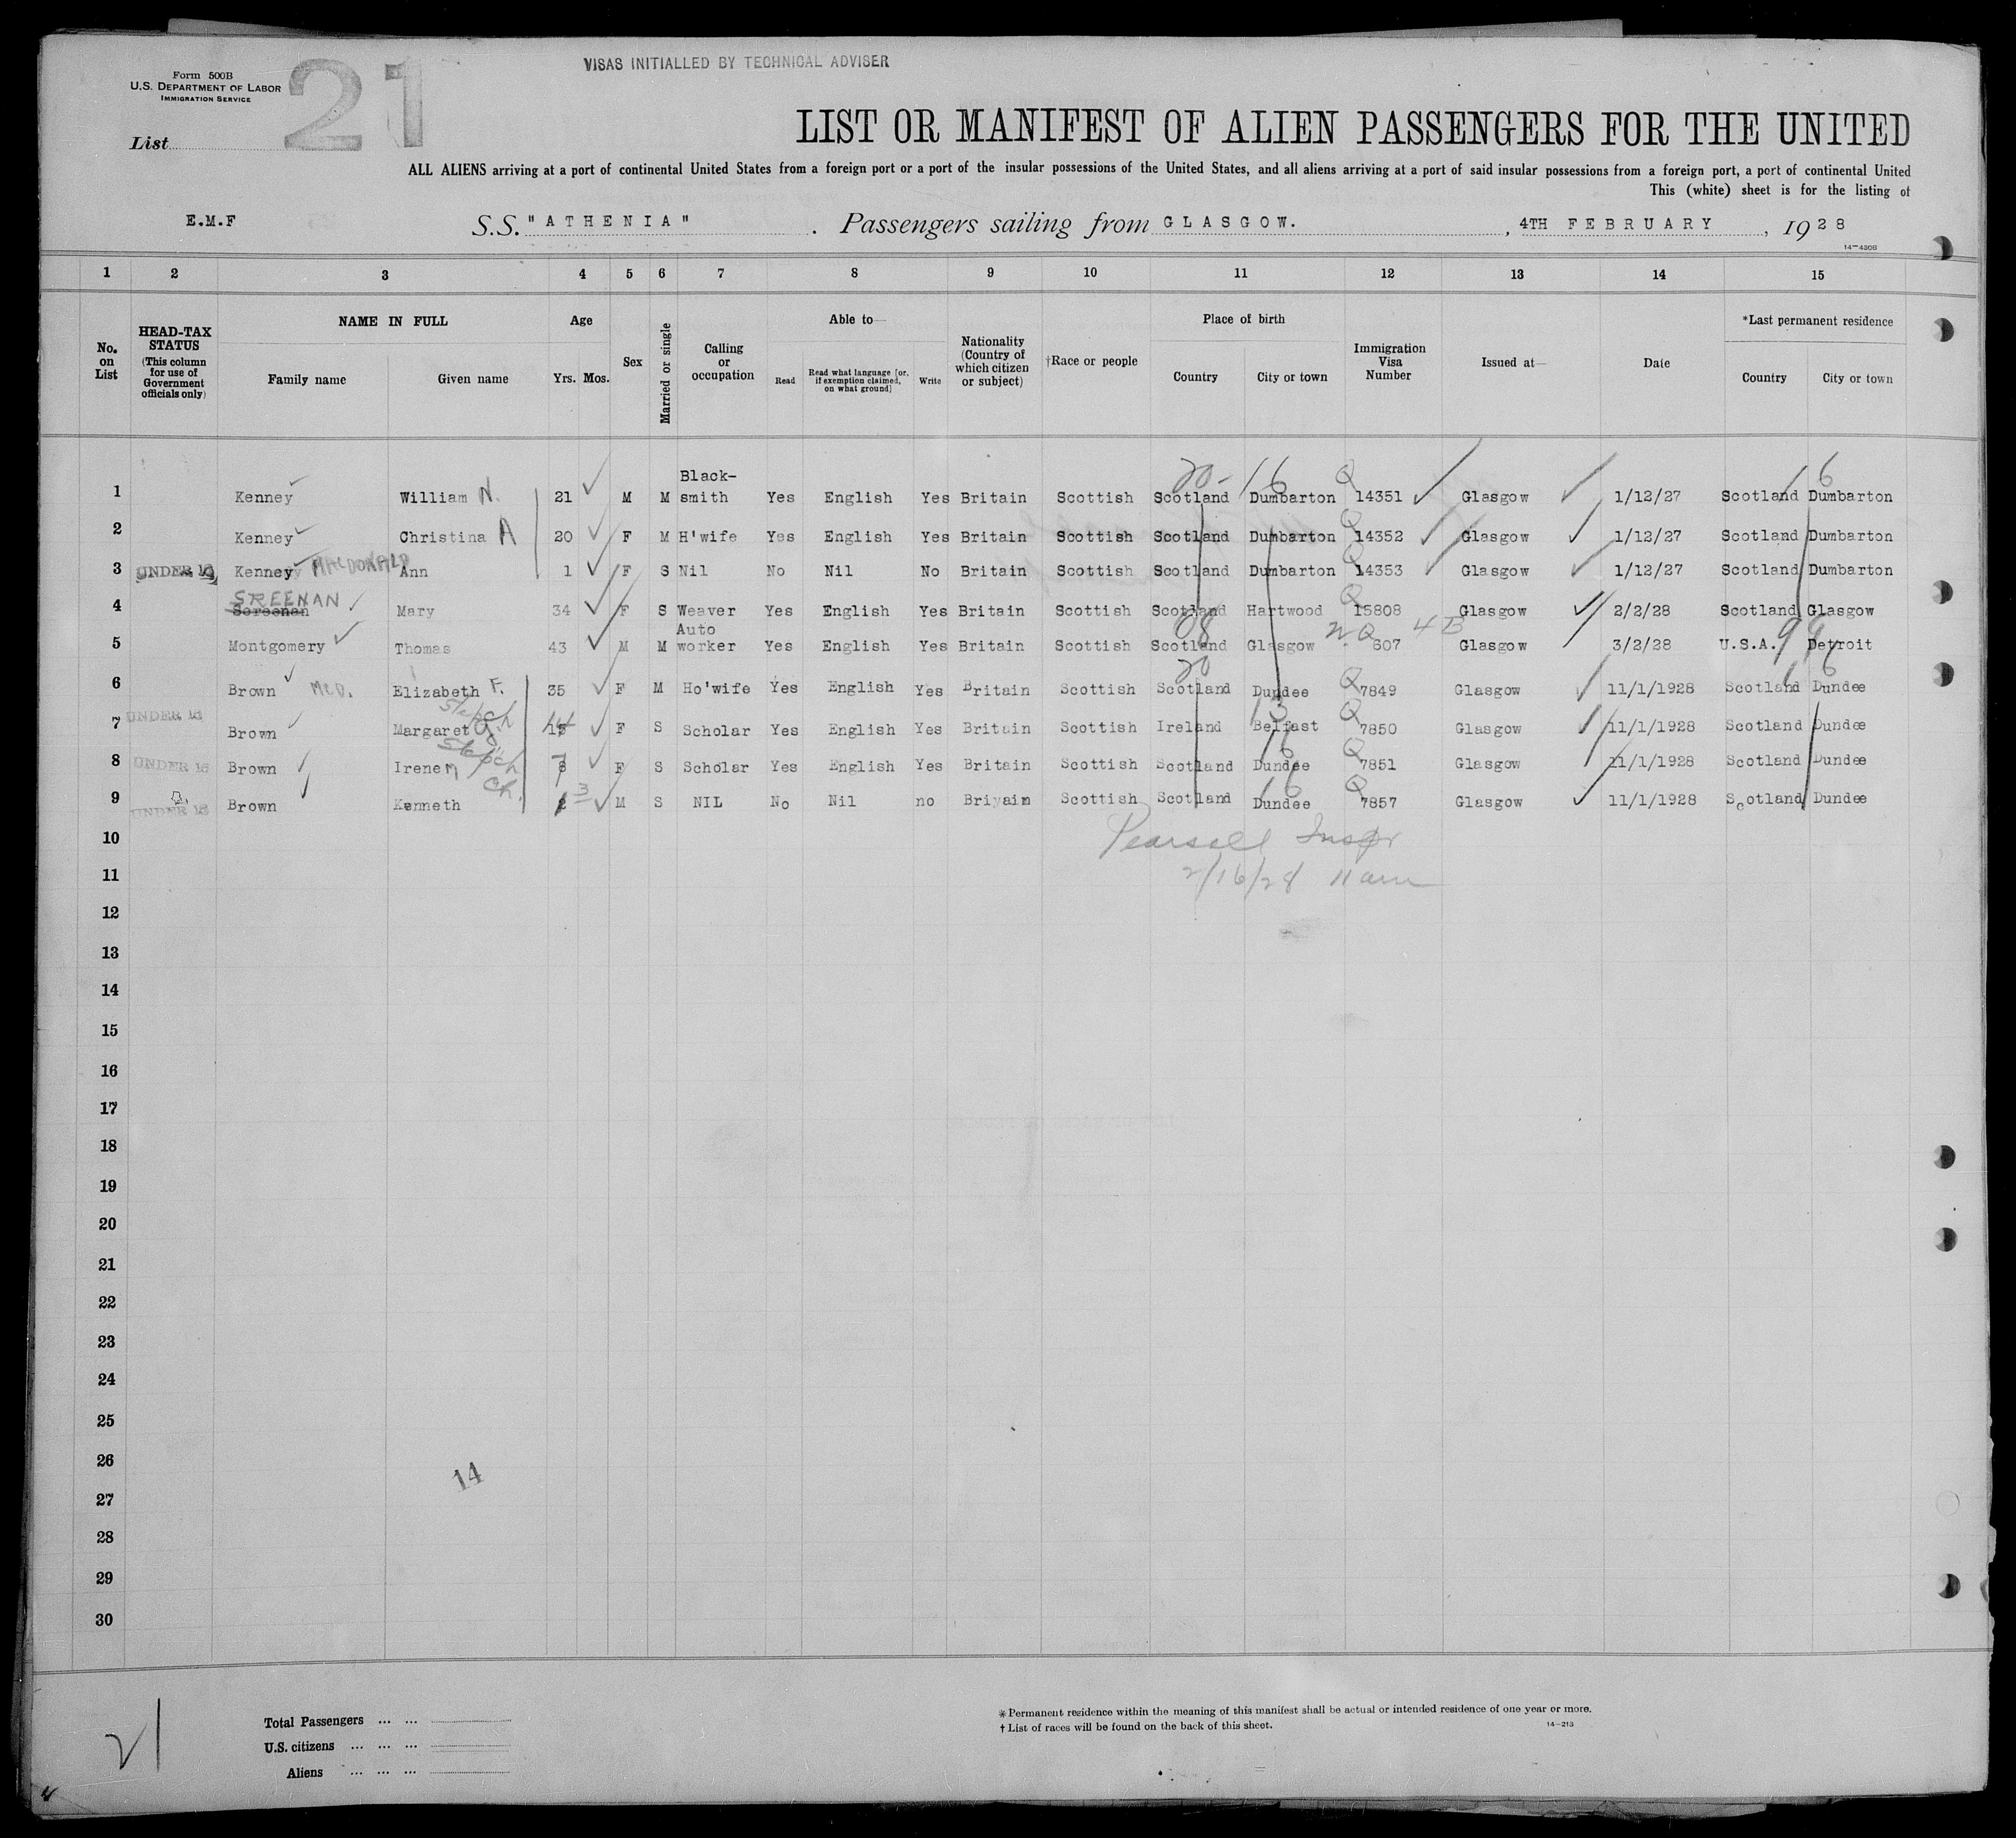 Form 500B
U.S. DEPARTMENT OF LABOR
IMMIGRATION SERVICE
List
21
VISAS INITIALLED BY TECHNICAL ADVISER
LIST OR MANIFEST OF ALIEN PASSENGERS FOR THE UNITED
ALL ALIENS arriving at a port of continental United States from a foreign port or a port of the insular possessions of the United States, and all aliens arriving at a port of said insular possessions from a foreign port, a port of continental United
This (white) sheet is for the listing of
E.M.F
S.S. "ATHENIA". Passengers sailing from GLASGOW., 4TH FEBRUARY, 1928
14-430B
1 2 3 4 5 6 7 8 9 10 11 12 13 14 15
No. on List
HEAD-TAX STATUS (This column for use of Government officials only)
NAME IN FULL
Family name
Given name
Age
Yrs. Mos.
Sex
Married or single
Calling or occupation
Able to—
Read
Read what language [or, if exemption claimed, on what ground]
Write
Nationality (Country of which citizen or subject)
†Race or people
Place of birth
Country
City or town
Immigration Visa Number
Issued at—
Date
*Last permanent residence
Country
City or town
20-16 Q 16
1 Kenney William N. 21 M M Black-smith Yes English Yes Britain Scottish Scotland Dumbarton 14351 Glasgow 1/12/27 Scotland Dumbarton
2 Kenney Christina A 20 F M H'wife Yes English Yes Britain Scottish Scotland Dumbarton Q 14352 Glasgow 1/12/27 Scotland Dumbarton
3 UNDER 16 Kenney MACDONALD Ann 1 F S Nil No Nil No Britain Scottish Scotland Dumbarton Q 14353 Glasgow 1/12/27 Scotland Dumbarton
SREENAN
4 Screenan Mary 34 F S Weaver Yes English Yes Britain Scottish Scotland Hartwood Q 15808 Glasgow 2/2/28 Scotland Glasgow
5 Montgomery Thomas 43 M M Auto worker Yes English Yes Britain Scottish Scotland 08 Glasgow NQ 607 4B Glasgow 3/2/28 U.S.A. Detroit
6 Brown McD. Elizabeth F. 35 F M Ho'wife Yes English Yes Britain Scottish Scotland 20 Dundee Q 7849 Glasgow 11/1/1928 Scotland 16 Dundee
7 UNDER 16 Brown Margaret G. Stepch 14 F S Scholar Yes English Yes Britain Scottish Ireland Belfast 13 Q 7850 Glasgow 11/1/1928 Scotland Dundee
8 UNDER 16 Brown Irene M Stepch 7 F S Scholar Yes English Yes Britain Scottish Scotland Dundee 16 Q 7851 Glasgow 11/1/1928 Scotland Dundee
9 UNDER 16 Brown Kenneth Ch. 3 M S NIL No Nil no Briyain Scottish Scotland Dundee 16 Q 7857 Glasgow 11/1/1928 Scotland Dundee
10
Pearsall Inspr
11
2/16/28 11am
12
13
14
15
16
17
18
19
20
21
22
23
24
25
26
14
27
28
29
30
21
Total Passengers ... ...
U.S. citizens ... ... ...
Aliens ... ... ...
* Permanent residence within the meaning of this manifest shall be actual or intended residence of one year or more.
† List of races will be found on the back of this sheet.
14-213